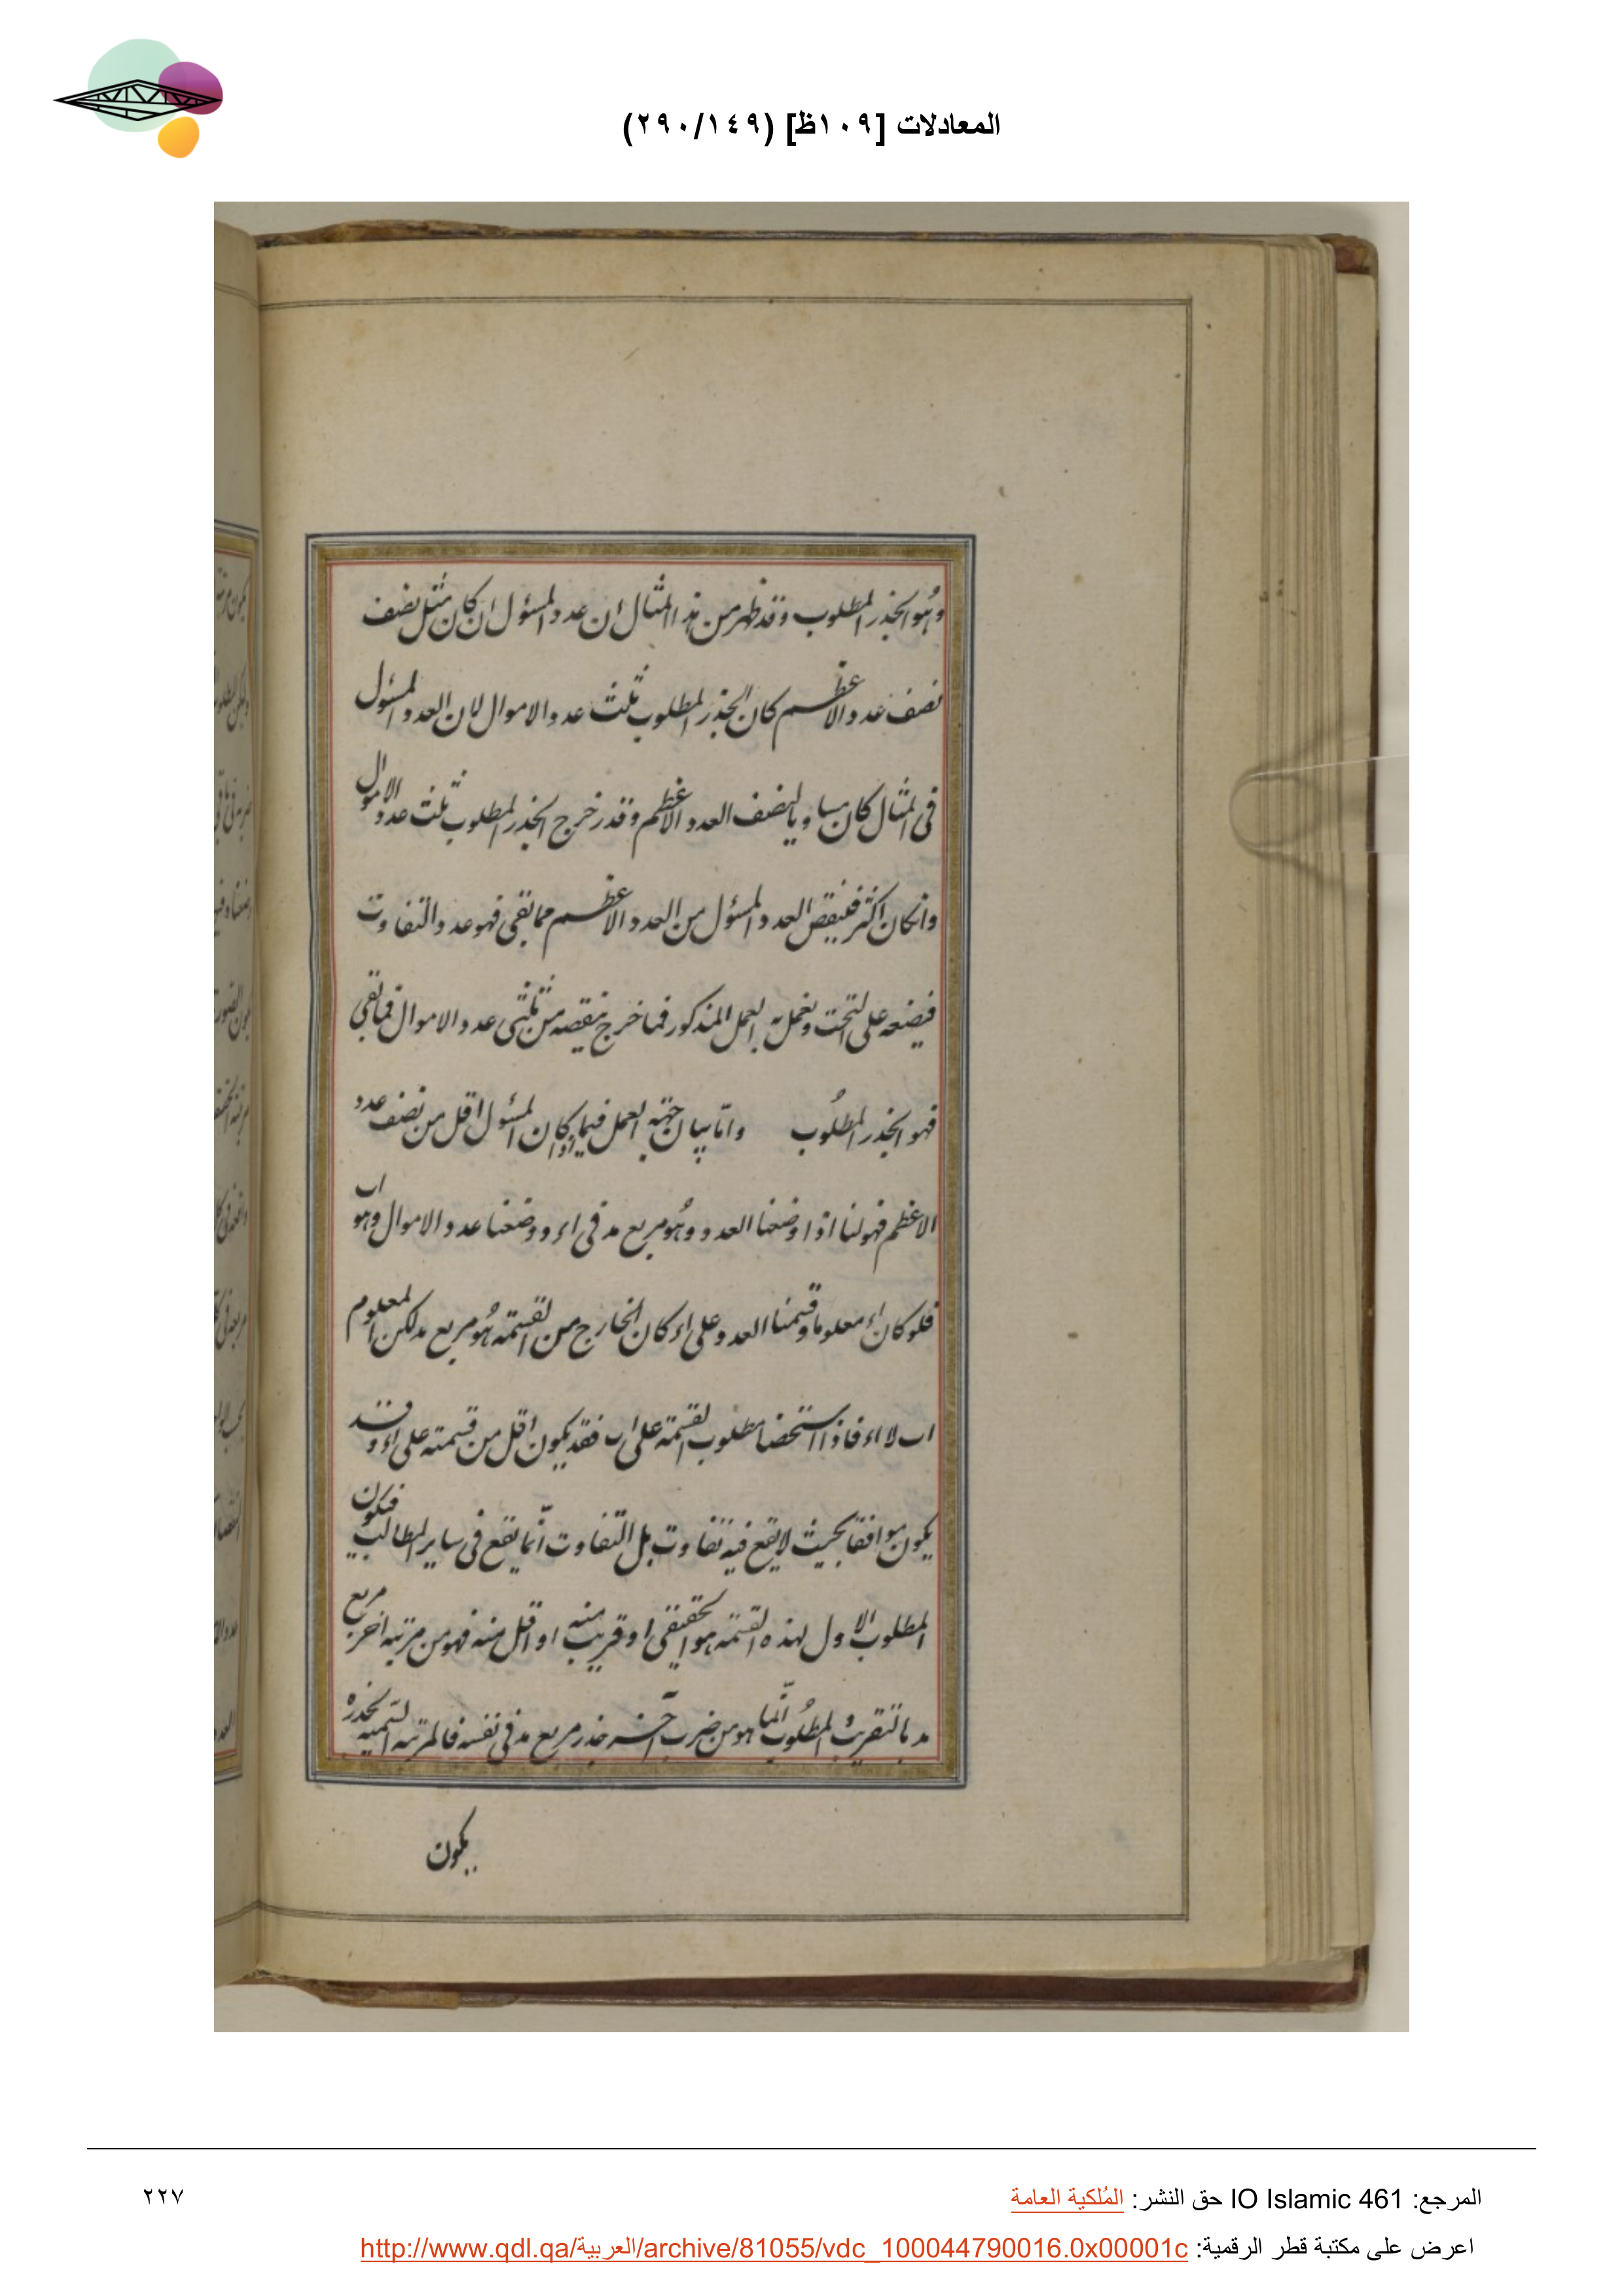 المعادلات [١٠٩ظ] (٢٩٠/١٤٩)
وهو الجذر المطلوب وقد ظهر من هذا المثال ان عدد المسئول ان كان مثل نصف
نصف عدد الاعظم كان الجذر المطلوب ثلث عدد الاموال لان العدد المسئول
فى المثال كان مساويا لنصف العدد الاعظم وقد خرج الجذر المطلوب ثلث عدد الاموال
وانكان اكثر فينقص العدد المسئول من العدد الاعظم مما بقى فهو عدد التفاوت
فيضعه على التخت ونعمل به العمل المذكور فما خرج ينقصه من ثلثى عدد الاموال فما بقى
فهو الجذر المطلوب واما بيان جهة العمل فيما اذا كان المسئول اقل من نصف عدد
الاعظم فهو لنا اذا وضعنا العدد وهو مربع مد فى اء ووضعنا عدد الاموال وهو اب
فلو كان اء معلوما وقسمنا العدد على اء كان الخارج من القسمة هو مربع مد لكن المعلوم
اب لا اء فاذا استحضنا مطلوب القسمة على اب فقد يكون اقل من قسمته على اء وقد
يكون موافقا بحيث لا يقع فيه تفاوت بل التفاوت انما يقع فى ساير المطالب فيكون
المطلوب الاول لهذه القسمة هو الحقيقى او قريب منه او اقل منه فهو من مرتبه اخر مربع
مد بالتقريب والمطلوب انما هو من ضرب آخر جذر مربع مد فى نفسه فالمرتبه السمية لجذره
يكون
المرجع: IO Islamic 461 حق النشر: المُلكية العامة
٢٢٧
اعرض على مكتبة قطر الرقمية: http://www.qdl.qa/العربية/archive/81055/vdc_100044790016.0x00001c